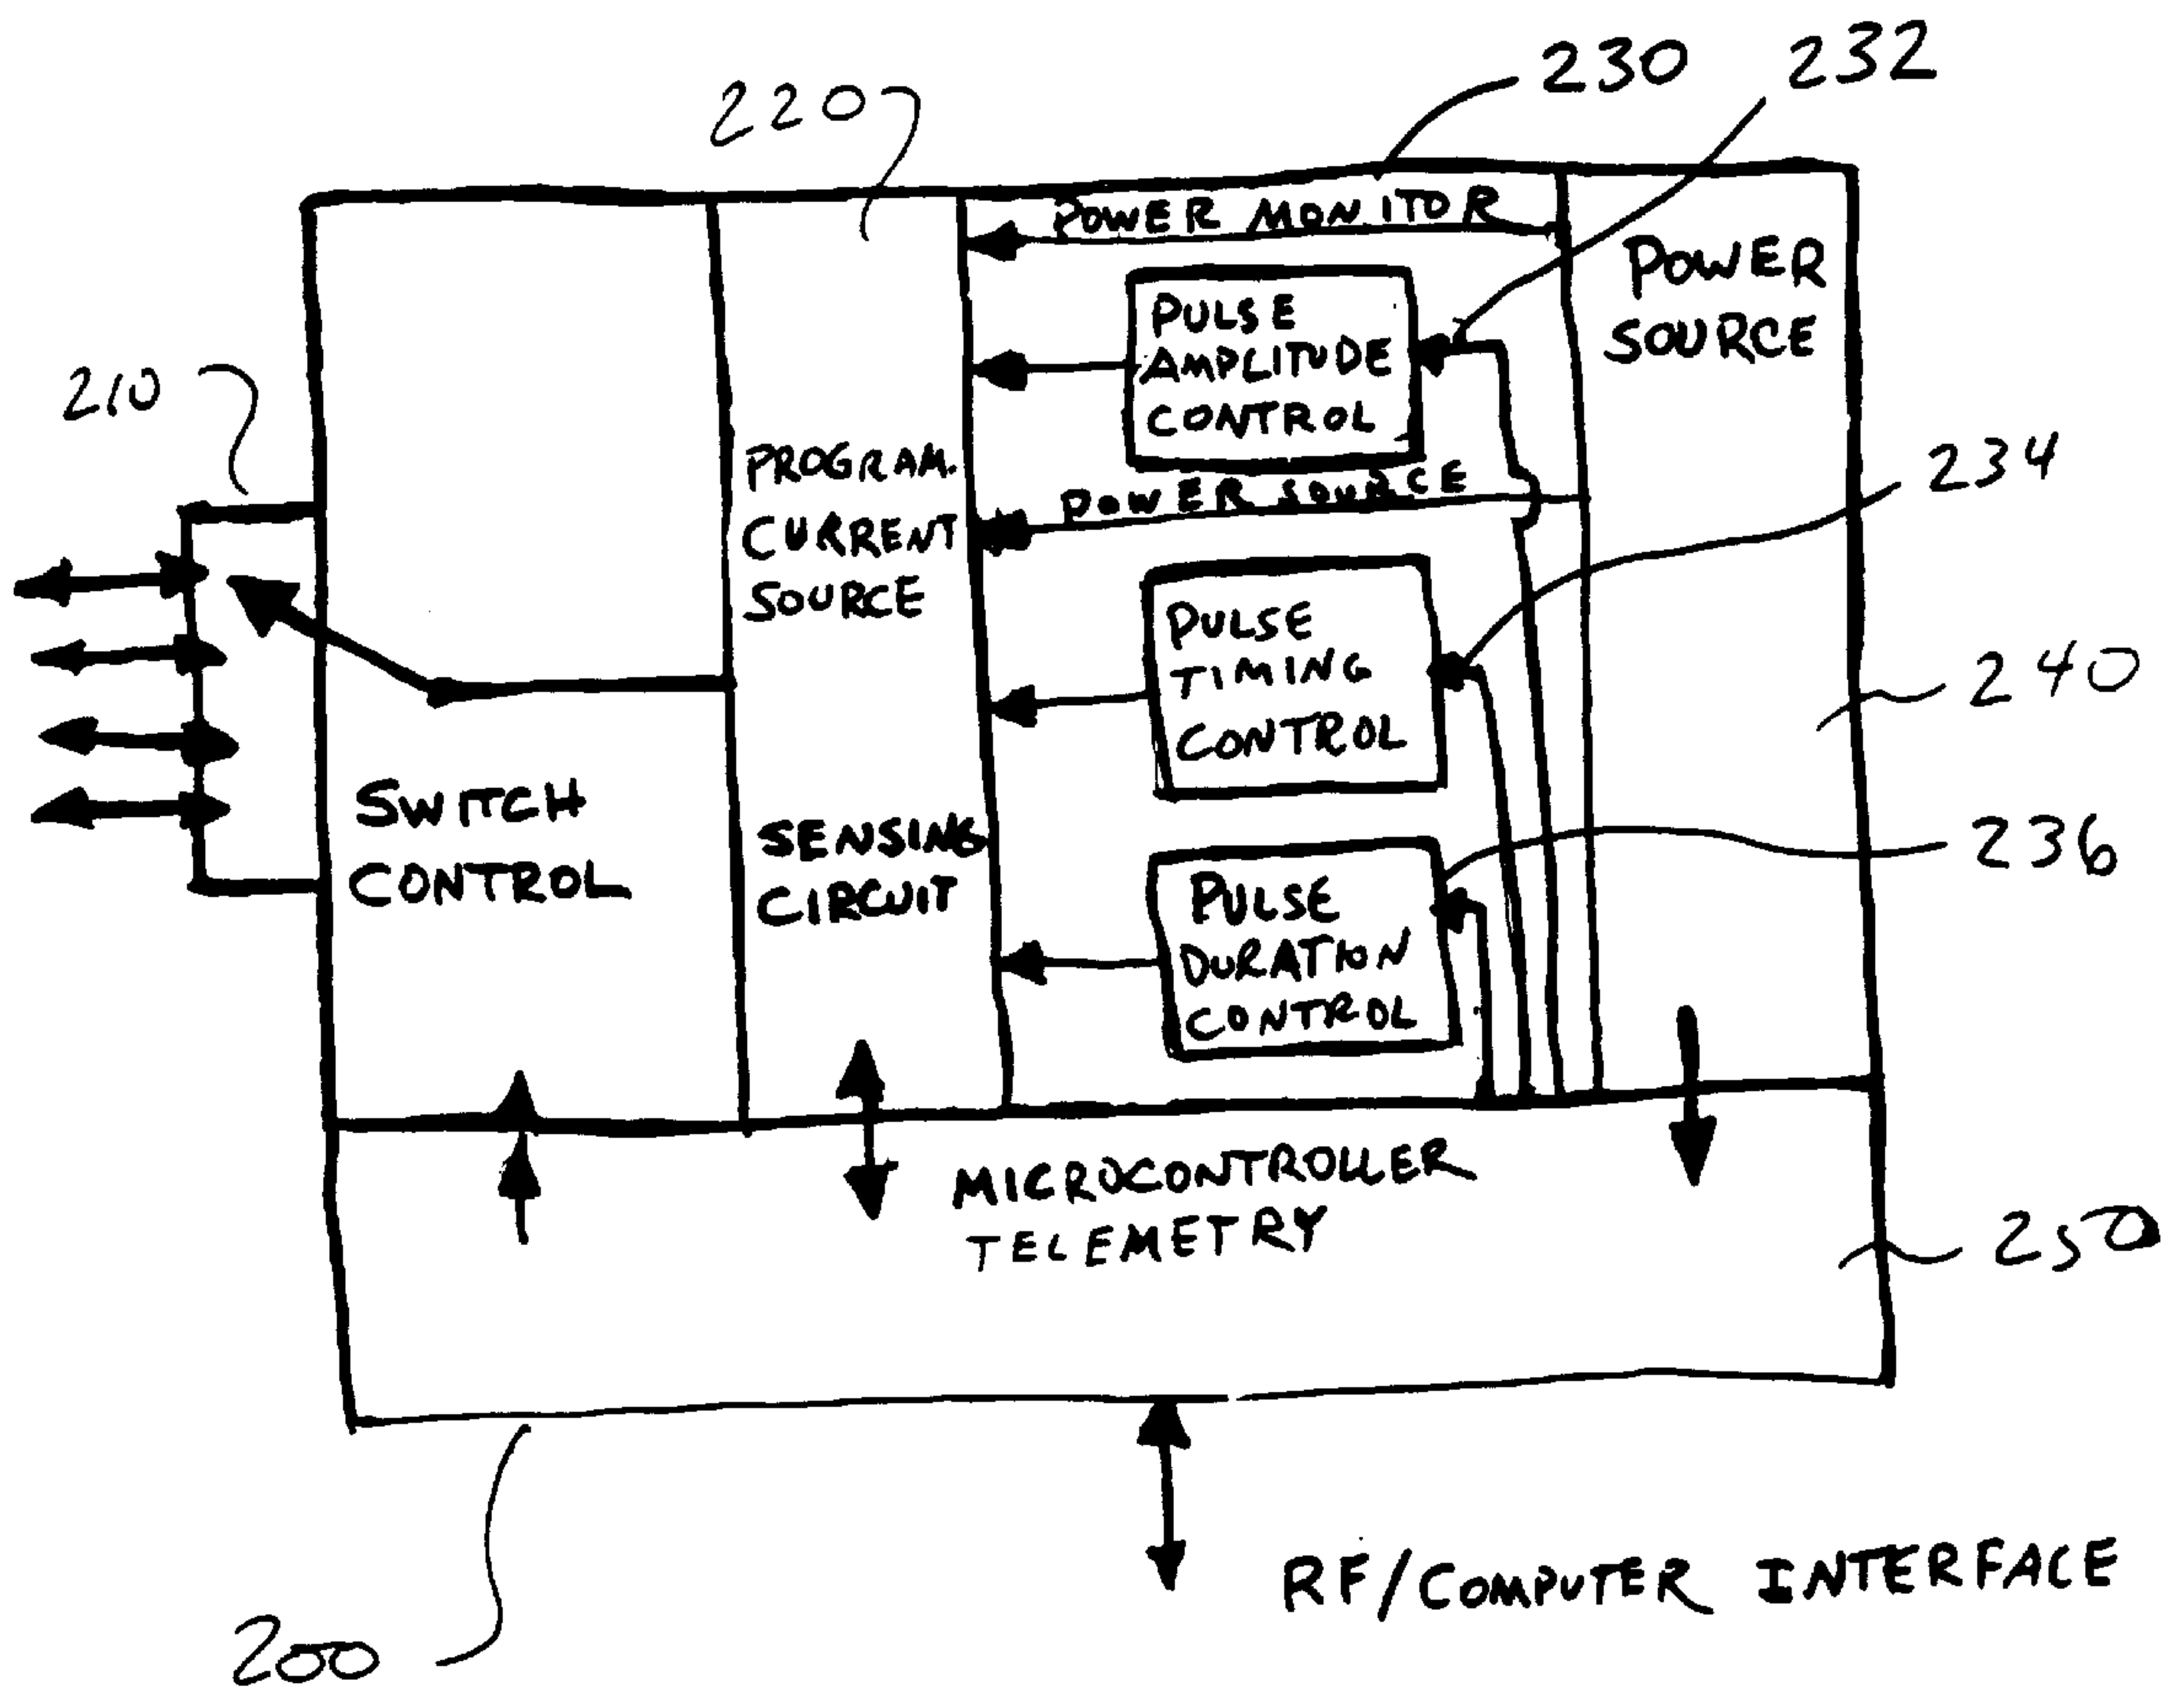 230
232
220
POWER MONITOR
POWER
SOURCE
PULSE
AMPLITUDE
CONTROL
210
234
PROGRAM.
CURRENT
SOURCE
POWER SOURCE
PULSE
TIMING
CONTROL
240
SWITCH
CONTROL
SENSING
CIRCUIT
236
PULSE
DURATION
CONTROL
MICROCONTROLLER
TELEMETRY
250
RF/COMPUTER INTERFACE
200